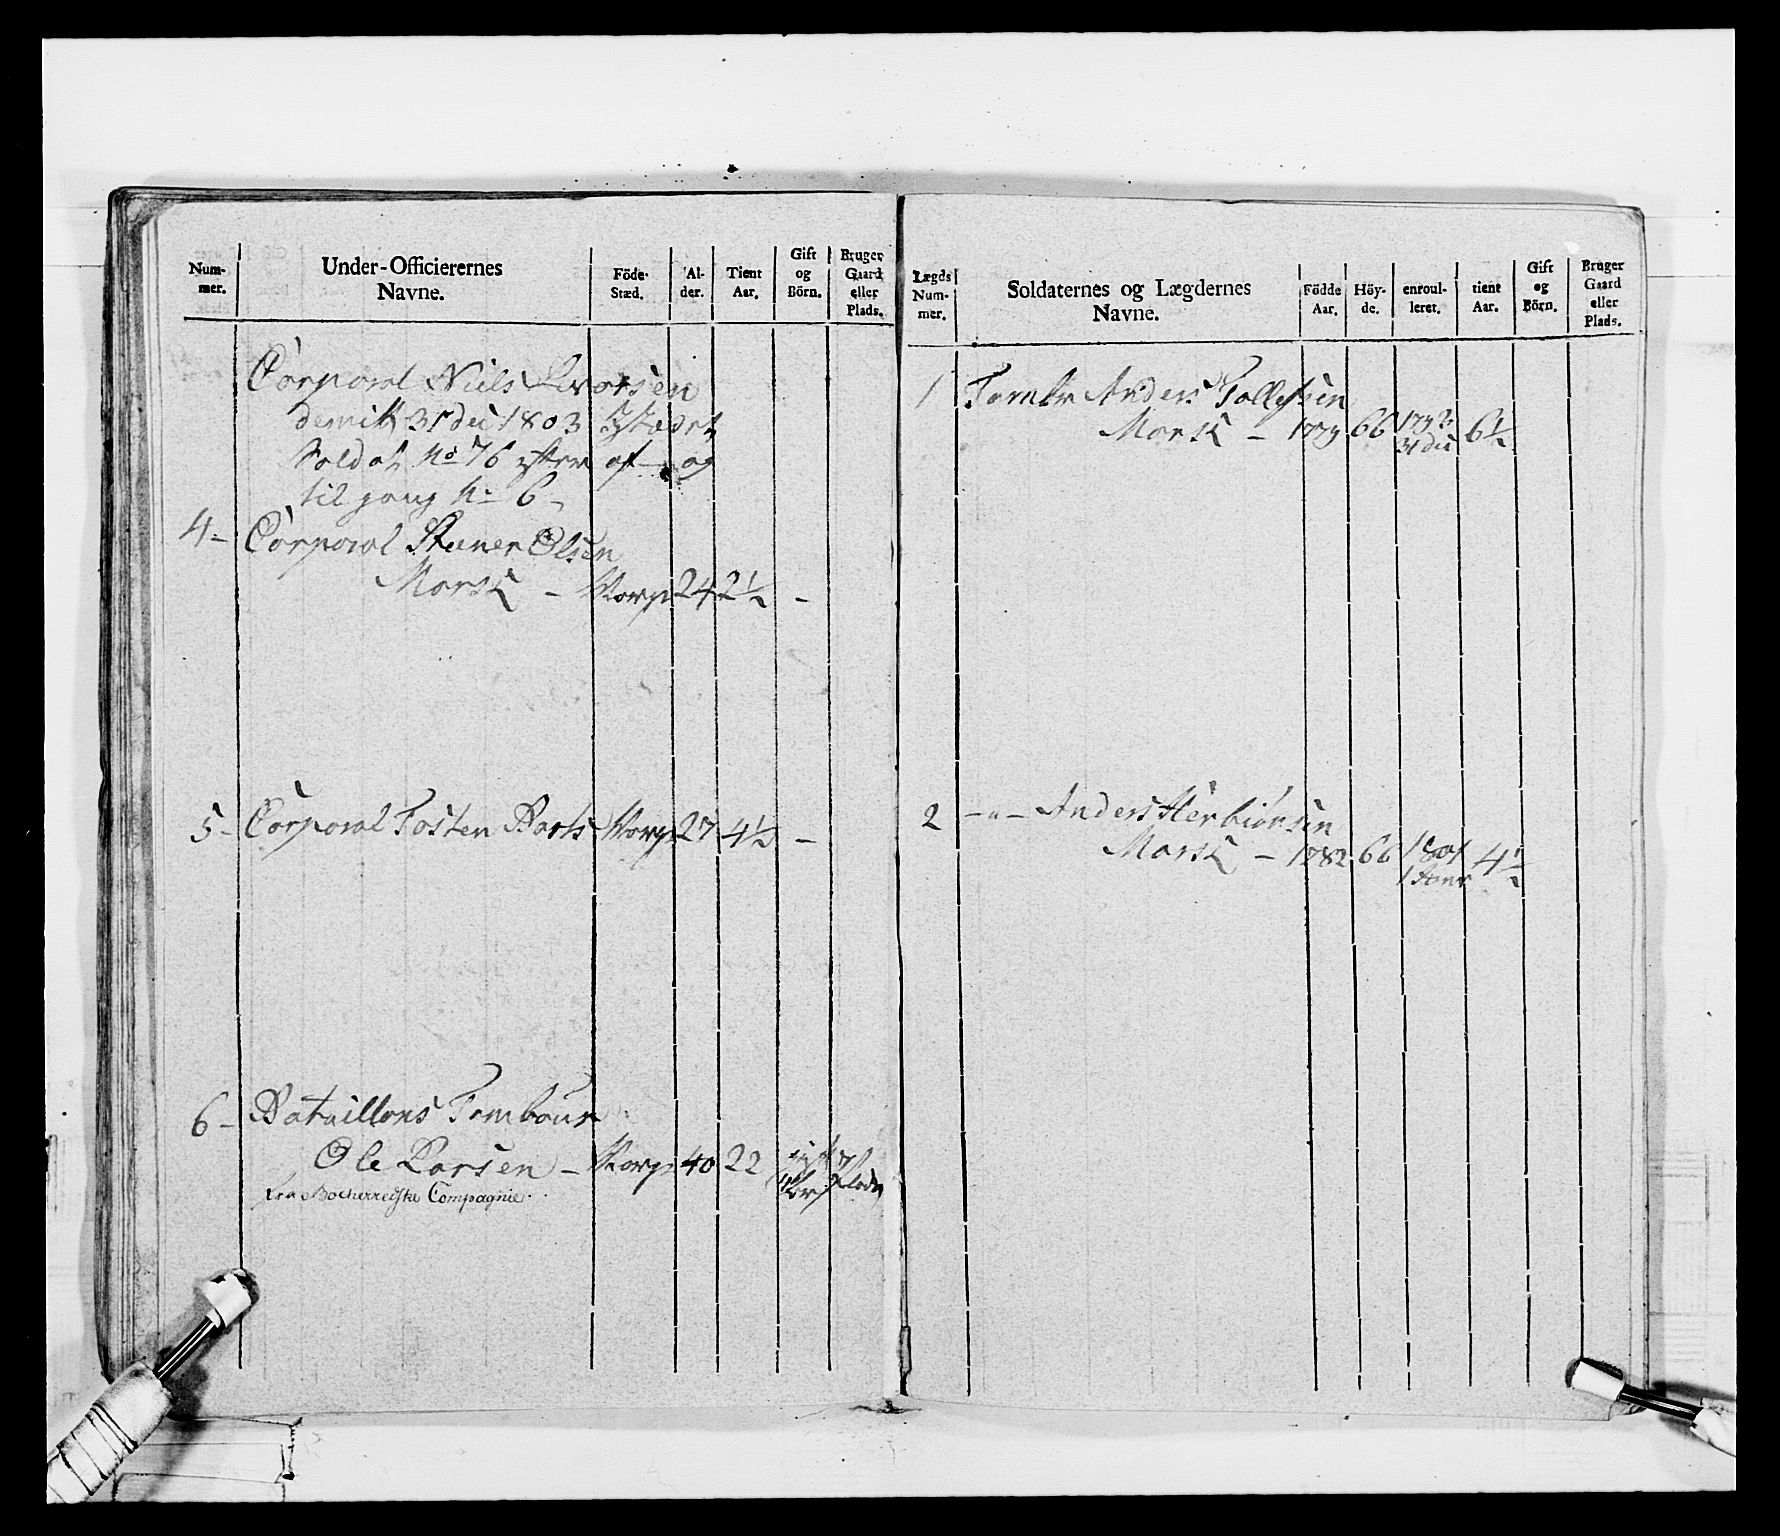 Num-
mer.
Under-Officierernes
Navne.
Föde-
Stæd.
Al-
der.
Tient
Aar.
Gift
og
Börn.
Bruger
Gaard
eller
Plads.
Corporal Niels Ivarsen
31 dec 1803
Soldat No 76 efter af og
til gang No 6
4- Corporal Steener Olsen
Norsk - Norge 24 2½ -
5- Corporal Tosten Norge 27 4½ -
6- Bataillons Tambour
Ole Larsen - Norge 40 22
fra Compagnie
Lægds
Num-
mer.
Soldaternes og Lægdernes
Navne.
Födde
Aar.
Höy-
de.
enroul-
leret.
tient
Aar.
Gift
og
Börn.
Bruger
Gaard
eller
Plads.
1 Tambr Anders Tollefsen
Norsk - 66 6½
31 dec
2 -"- Anders Herbiönsen
Norsk - 1782 66 1801 4½